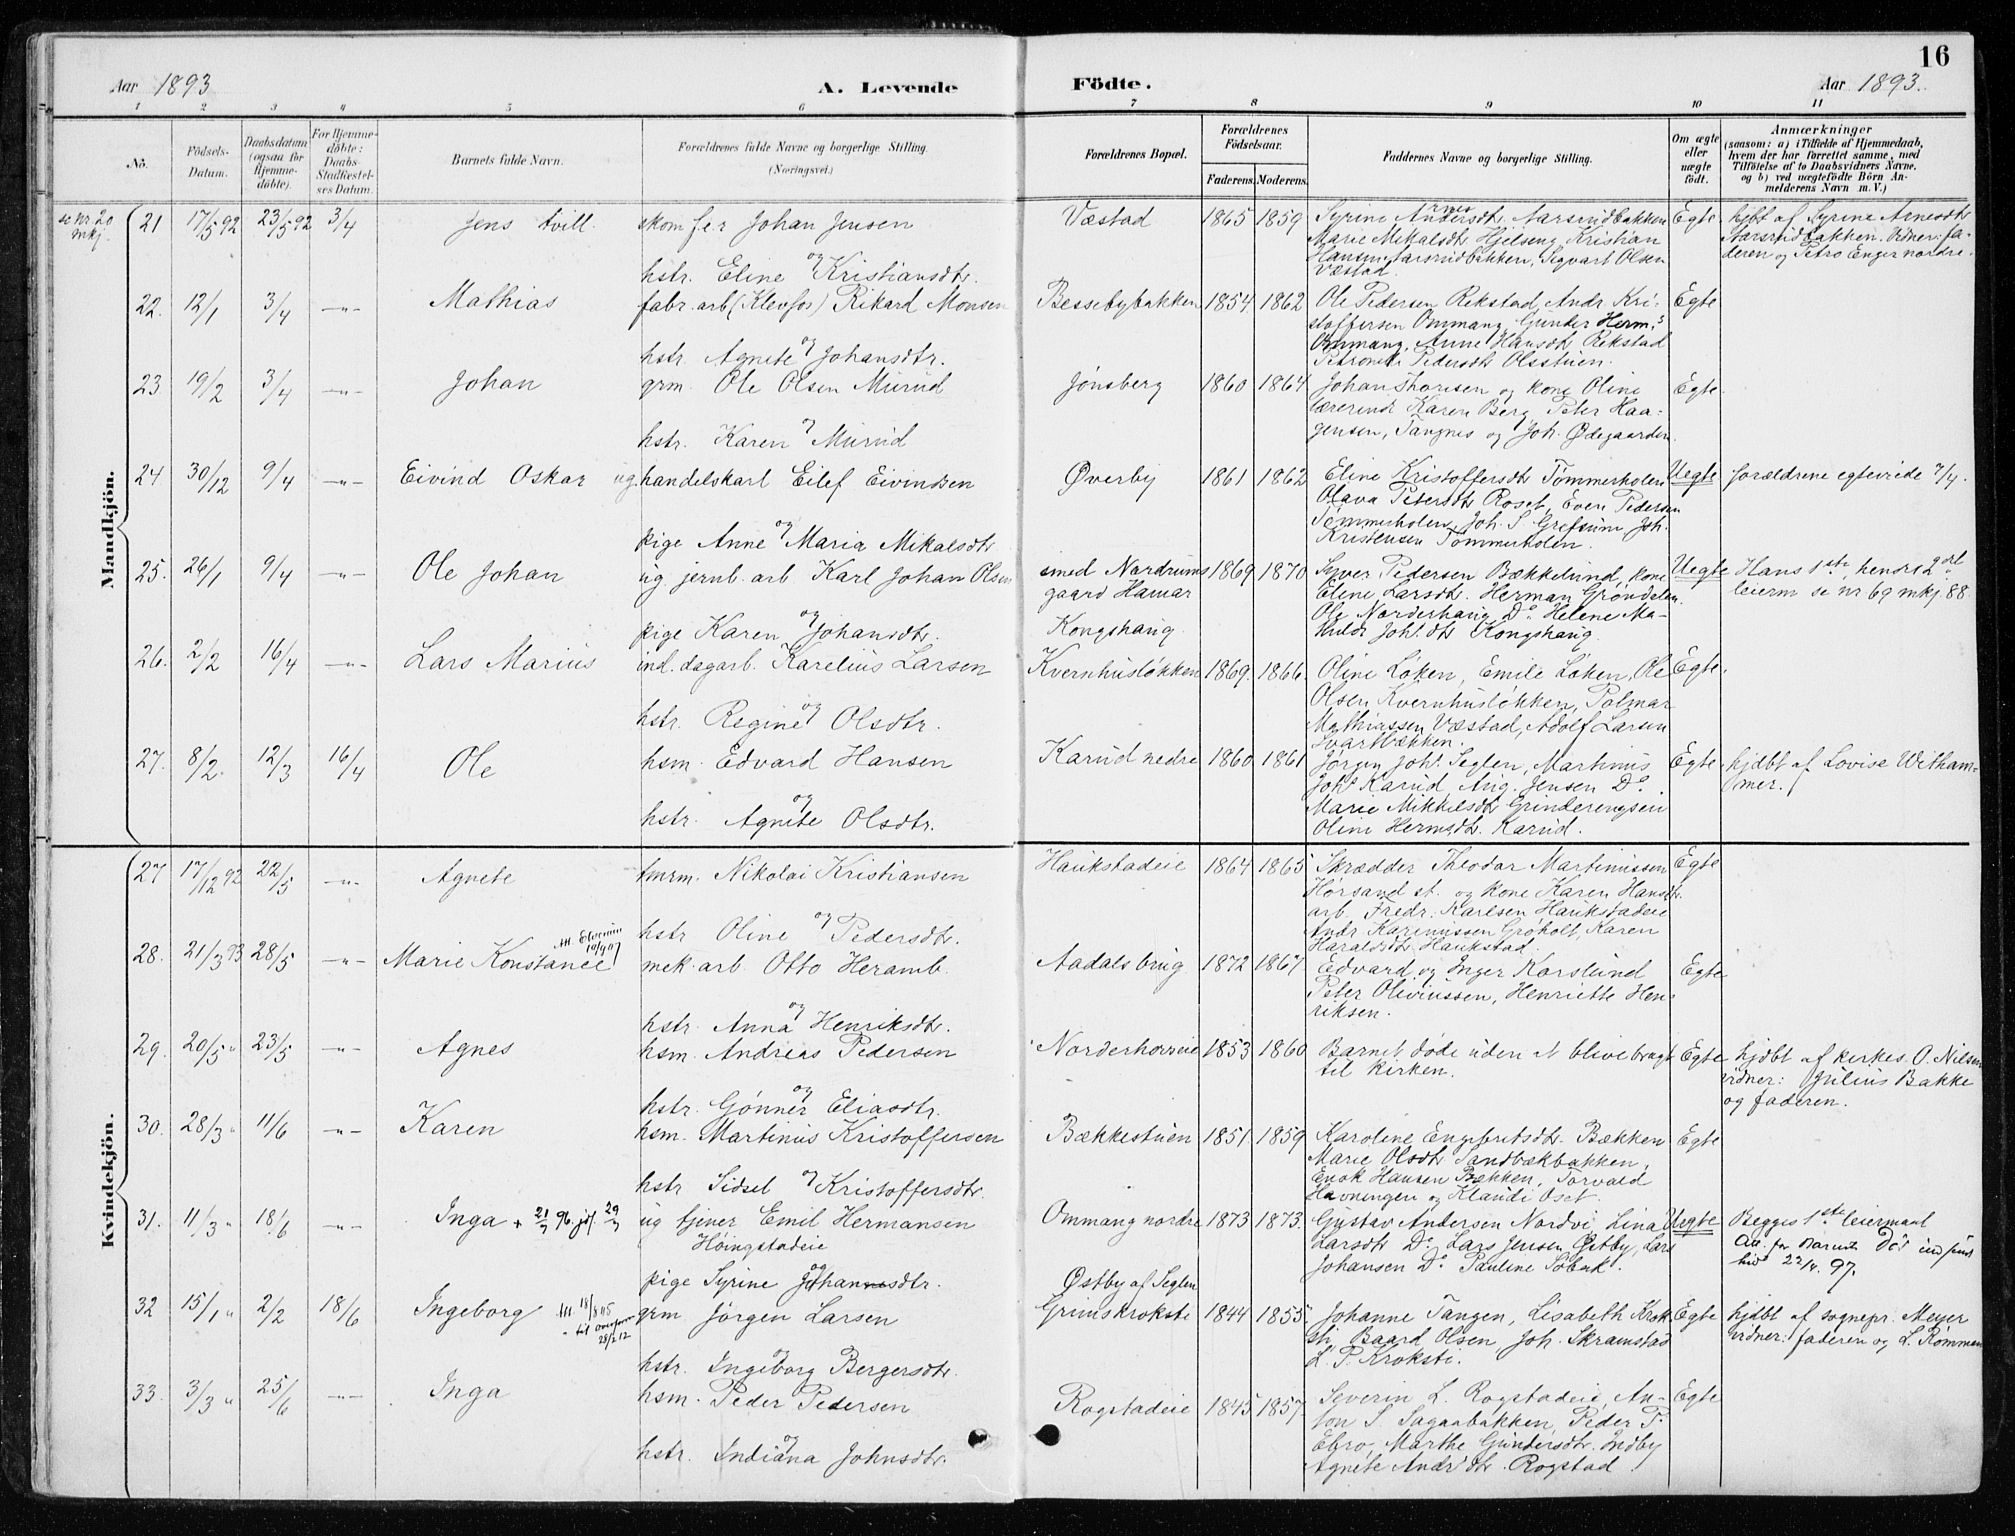 16
Aar 1893
A. Levende
Födte.
Aar 1893.
1 2 3 4 5 6 7 8 9 10 11
Nö.
Födsels-
Datum.
Daabsdatum
(ogsaa för
Hjemme-
döbte).
For Hjemme-
döbte:
Daabs-
Stadfæstel-
ses Datum.
Barnets fulde Navn.
Forældrenes fulde Navne og borgerlige Stilling.
(Næringsvei.)
Forældrenes Bopæl.
Forældrenes
Födselsaar.
Faderens. Moderens.
Faddernes Navne og borgerlige Stilling.
Om ægte
eller
uægte
födt.
Anmærkninger
(saasom: a) i Tilfælde af Hjemmedaab,
hvem der har forrettet samme, med
Tilföielse af to Daabsvidners Navne,
og b) ved uægtefödte Börn An-
melderens Navn m. V.)
Mandkjön.
se nr 20
mkj.
21 17/5 92 23/5 92 3/4 Jens tvill. skom f.e.r Johan Jensen
og
hstr. Eline Kristiansdtr.
Væstad 1865 1859 Syrine Arnesdtr Aarsrudbakken
Marie Mikalsdtr Hjelseng Kristian
Hansen Aarsrudbakken, Sigvart Olsen
Væstad
Egte hjbt af Syrine Arnesdtr
Aarsrudbakken. Vidner: fa-
deren og Petro Enger nordre.
22. 12/1 3/4 -"- Mathias fabr. arb (Klevfos) Rikard Monsen
og
hstr. Agnete Johansdtr.
Bessebybakken 1854. 1862 Ole Pedersen Rekstad, Andr. Kri-
stoffersen Ommang, Gunder Herm.s
Ommang, Anne Hansdtr Rekstad
Petronille Pedersdtr Olsstuen.
Egte
23 19/2 3/4 -"- Johan grm. Ole Olsen Murud
og
hstr. Karen Murud
Jønsberg 1860 1864 Johan Thorsen og kone Oline
lærerinde Karen Berg Peter Haa-
gensen, Tangnes og Joh. Ødegaarden
Egte.
24 30/12 9/4 -"- Eivind Oskar ug. handelskarl Eilef Eivindsen
og
pige Anne Maria Mikalsdtr
Øverby 1861 1862 Eline Kristoffersdtr Tømmerholen
Olava Petersdtr Roset, Even Pedersen
Tømmerholen, Joh. S. Grefsum, Joh.
Kristensen Tømmerholen.
Uegte forældrene egteviede 7/4.
25. 26/1 9/4 -"- Ole Johan ug. jernb. arb Karl Johan Olsen
og
pige Karen Johansdtr.
smed Nordrums
gaard Hamar
Kongshaug
1869 1870 Syver Pedersen Bækkelund, kone
Eline Larsdtr. Herman Grøndalen.
Ole Norderhaug Do Helene Ma-
thilde Joh.dtr Kongshaug.
Uegte Hans 1ste, hendes 2det
leierm se nr 69 mkj. 88.
26. 2/2 16/4 -"- Lars Marius ind. dagarb. Karelius Larsen
og
hstr. Regine Olsdtr.
Kvernhusløkken 1869. 1866. Oline Løken, Emile Løken, Ole
Olsen Kvernhusløkken, Palmar
Mathiassen Væstad, Adolf Larsen
Svartbækken.
Egte.
27. 8/2. 12/3 16/4 Ole hsm. Edvard Hansen
og
hstr. Agnete Olsdtr.
Karud nedre 1860 1861 Jørgen Joh.s Seglen, Martinus
Joh.s Karud, Aug. Jensen Do.
Marie Mikkelsdtr Grinderengsen
Oline Hermsdtr. Karud.
Egte. hjdbt af Lovise Witham-
mer.
Kvindekjön.
27 17/12 92 22/5 -"- Agnete hmrm. Nikolai Kristiansen
og
hstr Oline Pedersdtr.
Haukstadeie 1864 1865 Skrædder Theodor Martinussen
Hørsand st. og kone Karen Hansdtr.
arb. Fredr. Karlsen Haukstadeie
Andr Karinussen Grøholt, Karen
Haraldsdtr Haukstad.
Egte
28. 21/3 93 28/5 -"- Marie Konstance Att. Elverum
10/9 07
mek. arb. Otto Heramb.
og
hstr. Anna Henriksdtr.
Aadals brug 1872 1867 Edvard og Inger Korslund
Peter Oliviussen, Henriette Hen-
riksen.
Egte
29. 20/5 " 23/5 -"- Agnes hsm. Andreas Pedersen
og
hstr. Gønner Eliasdtr.
Norderhoveie 1853 1860 Barnet døde uden at blive bragt
til kirken.
Egte hjdbt af kirkes. O. Nilsen
vidner: Julius Bakke
og faderen.
30. 28/3 " 11/6 -"- Karen hsm. Martinus Kristoffersen
og
hstr Sidsel Kristoffersdtr.
Bækkestuen 1851. 1859 Karoline Engebretsdtr. Bækken
Marie Olsdtr Sandbækbakken,
Enok Hansen Bækken, Torvald
Havningen og Klaudi Oset.
Egte
31. 11/3 " 18/6 -"- Inga + 21/7 96. jdf. 29/7 ug tjener Emil Hermansen
Høingstadeie
og
pige Syrine Johannesdtr.
Ommang nordre
Østby af Seglen
1873 1873. Gustav Andersen Nordvi, Lina
Larsdtr Do, Lars Jensen Østby, Lars
Johansen Do Pauline Søbak.
Uegte Begges 1ste leiermaal
32 15/1 " 2/2 18/6 Ingeborg grm Jørgen Larsen
og
hstr. Ingeborg Bergersdtr.
Grimskroksti 1844 1855. Johanne Tangen, Lisabeth Krok-
sti, Baard Olsen Joh. Skramstad
L. P. Kroksti.
Egte hjdbt af sognepr. Meyer
vidner: faderen og L. Rømmen
33. 3/3 " 25/6 -"- Inga hsm. Peder Pedersen
og
hstr. Indiana Johnsdtr.
Rogstadeie 1845 1857 Severin L. Rogstadeie, An-
ton S. Sagaabakken, Peder P.
Ebro, Marthe Gundersdtr. Indby
Agnete Andr.dtr Rogstad.
Egte